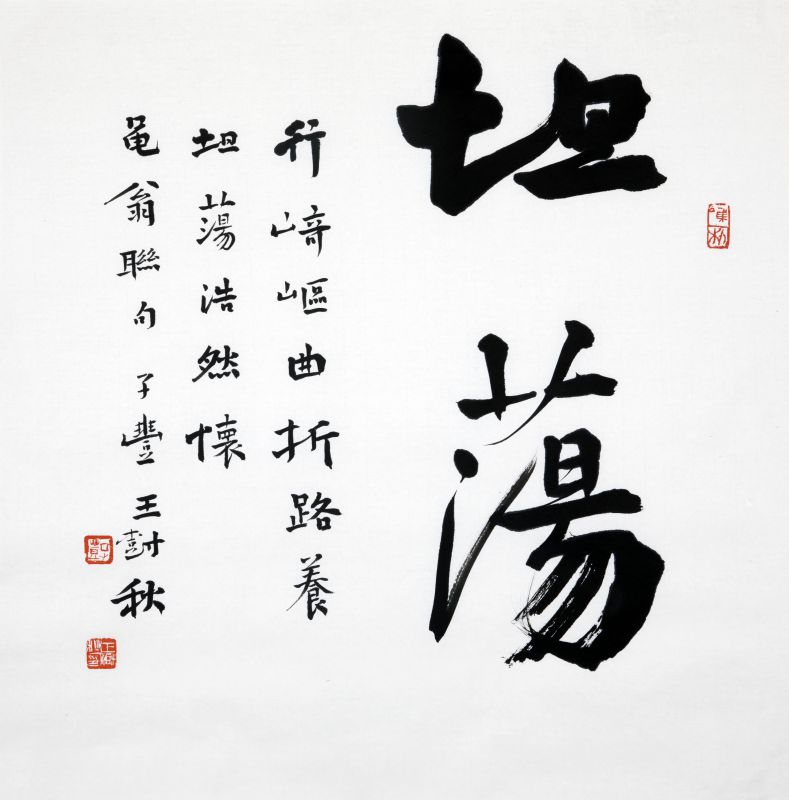 坦蕩
行崎嶇曲折路養
坦蕩浩然懷
黾翁聯句 子豐王尌秋